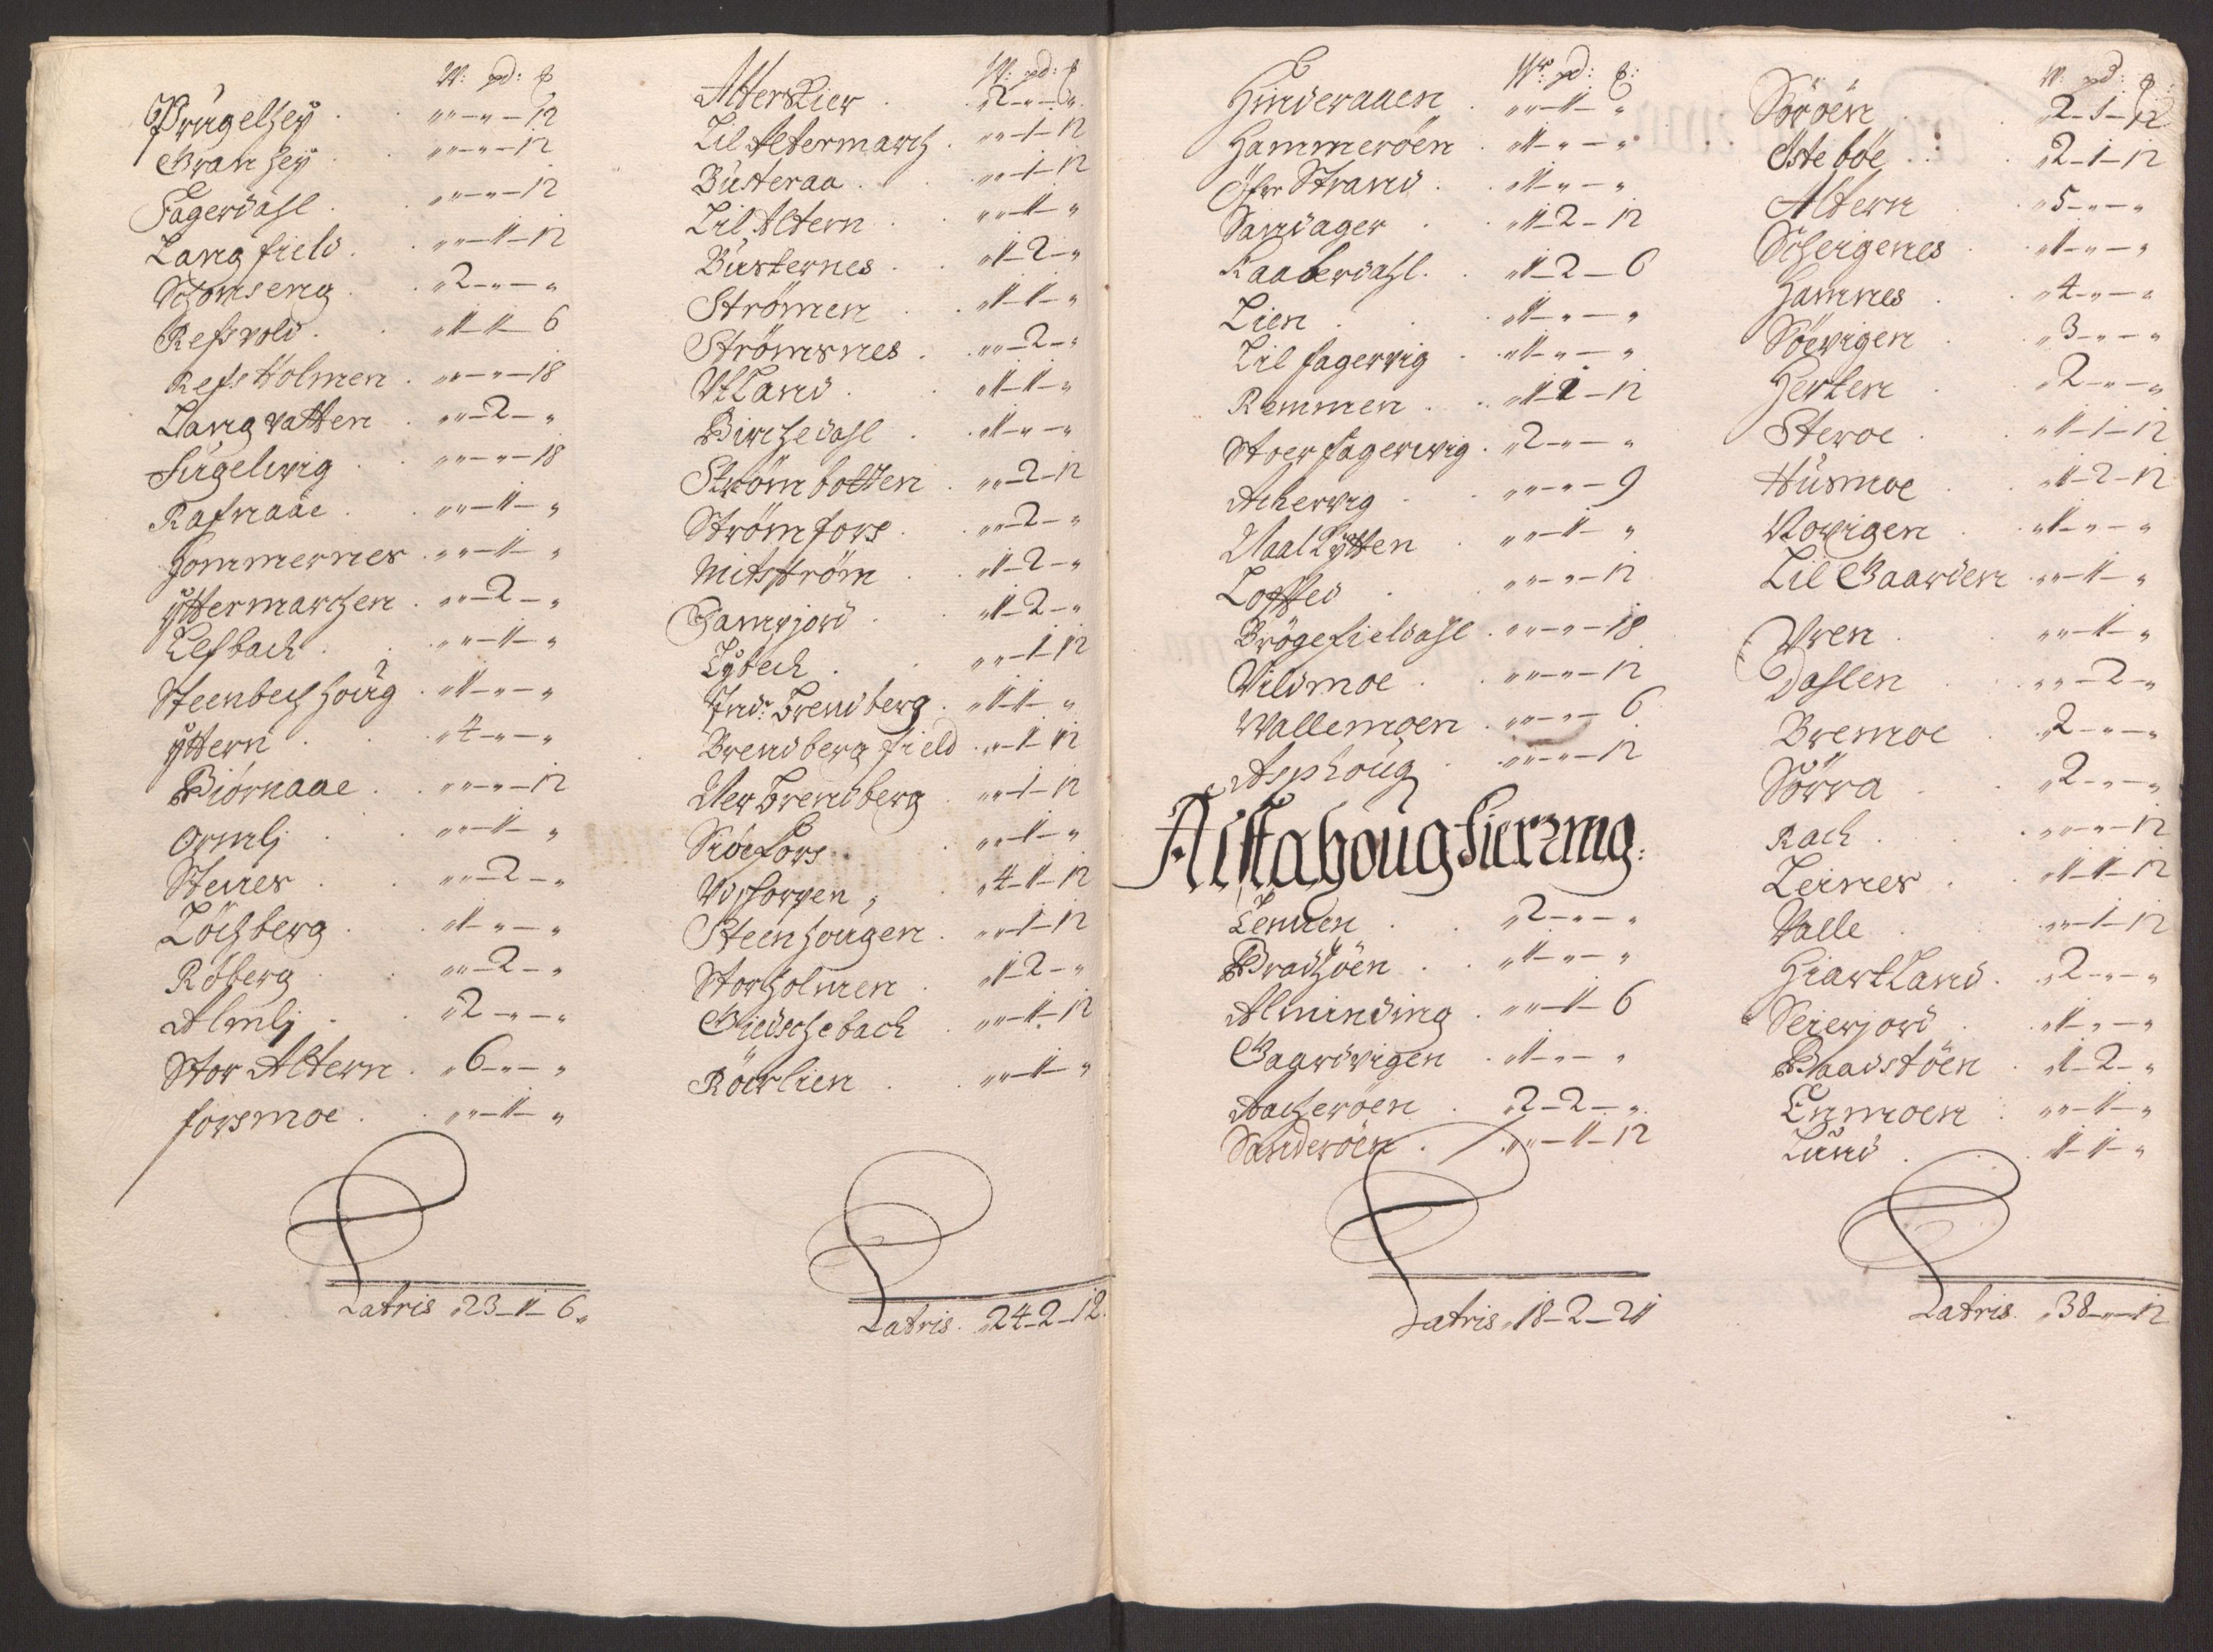 W: pd: ℔
Prügelhey . . „ „ – „ – 12
Granhey . . „ „ – „ – 12
Fagerdahl . . „ „ – „ – 12
Langfield . . „ „ – 1 – 12
Schonseng . . „ 2 – „ – „
Resvold . . „ 1 – 1 – 6
Refs Holmen . „ „ – „ – 18
Langvatten . „ „ – 2 – „
Fügelvig . . „ „ – „ – 18
Rafnaae . . „ „ – 1 – „
Hommernes . „ „ – 1 – „
ÿttermarchen . „ „ – 2 – „
Elfbach . . „ „ – 1 – „
Steenbech houg . „ 1 – „ – „
ÿttern . . „ 4 – „ – „
Biörnaae . . „ „ – „ – 12
Ormlj . . „ „ – 1 – „
Stenes . . „ „ – 2 – „
Löchberg . . „ 1 – „ – „
Roberg . . „ „ – 2 – „
Almlj . . „ 2 – „ – „
Stor Altern . „ 6 – „ – „
forsmoe . . „ „ – 1 – „
Latris „ 23 – 1 – 6 „
W: pd: ℔
Alterskier . „ 2 – „ – „
Lil Altermarch . „ „ – 1 – 12
Büsteraa . . „ „ – 1 – 12
Lil Altern . . „ „ – 1 – „
Büsternes . . „ 1 – 2 – „
Strömen . . „ 1 – 1 – „
Strömsnes . „ „ – 2 – „
Utland . . „ 1 – 1 – „
Birchedahl . „ 1 – „ – „
Strömbotten . „ „ – 2 – 12
Strömfors . . „ „ – 2 – „
Mitström . . „ 1 – 2 – „
Tamfjord . . „ 1 – 2 – „
Lÿbech . . „ „ – 1 – 12
Indr Brendberg . „ 1 – 1 – „
Brendberg field . „ „ – 1 – 12
Ner Brendberg . „ „ – 1 – 12
Siöefors . . „ „ – 1 – „
Vdschorpen „ „ 4 – 1 – 12
Steenhougen . „ „ – 1 – 12
Storholmen . „ 1 – 2 – „
Giedschebach . „ „ – 1 – 12
Röerlien . . „ „ – 1 – „
Latris . „ 24 – 2 – 12 .
Wr pd: ℔:
Hinderaaen . „ „ – 1 – „
Hammeröen . „ 1 – „ – „
Öfr Strand . „ 1 – „ – „
Sandager . „ 1 – 2 – 12
Raaberdahl . „ 1 – 2 – 6
Lien . . „ 1 – „ – „
Lil fagervig . „ 1 – „ – „
Remmen . . „ 1 – 1 – 12
Stoer fagerwig . „ 2 – „ – „
Achervig . . „ „ – „ – 9
Naal Lÿtten . „ „ – 1 – „
Lofted . „ „ – „ – 12
Brögefieldahl . „ „ – „ – 18
Vildmoe . . „ „ – „ – 12
Wallemoen . „ „ – „ – 6
Asphoüg . „ „ – „ – 12
Alstahoug fierzing:
Tennen . . „ 2 – „ – „
Bradhöen . . „ 1 – „ – „
Alminding . „ „ – 1 – 6
Gaardvigen . „ 1 – „ – „
Aacheröen . „ 2 – 2 – „
Sanderöen . „ „ – 1 – 12
Latris „ 18 – 2 – 21
W: pd: ℔:
Söröen . „ 2 – 1 – 12
Östeböe . „ 2 – 1 – 12
Altern . . „ 5 – „ – „
Scheigenes . „ 1 – „ – „
Hannes . . „ 4 – „ – „
Söevigen . „ 3 – „ – „
Herten . „ 2 – „ – „
Steroe . . „ 1 – 1 – 12
Hüsmoe . „ 1 – 2 – 12
Novigen . „ 1 – „ – „
Lil Gaarden . „ „ – 1 – „
Vren . . „ „ – 1 – „
Dahlen . . „ „ – 2 – „
Bremoe . „ 2 – „ – „
Sörra . . „ 2 – „ – „
Rach . . „ „ – „ – 12
Leines . . „ 1 – 1 – 12
Valle . . „ „ – 1 – 12
Hiartland . „ 2 – „ – „
Seierjord . „ 1 – „ – „
Baadstöen . „ 1 – 2 – „
Enmoen . „ „ – 1 – „
Lund . . „ 1 – 1 – „
Latris . „ 38 – „ – 12